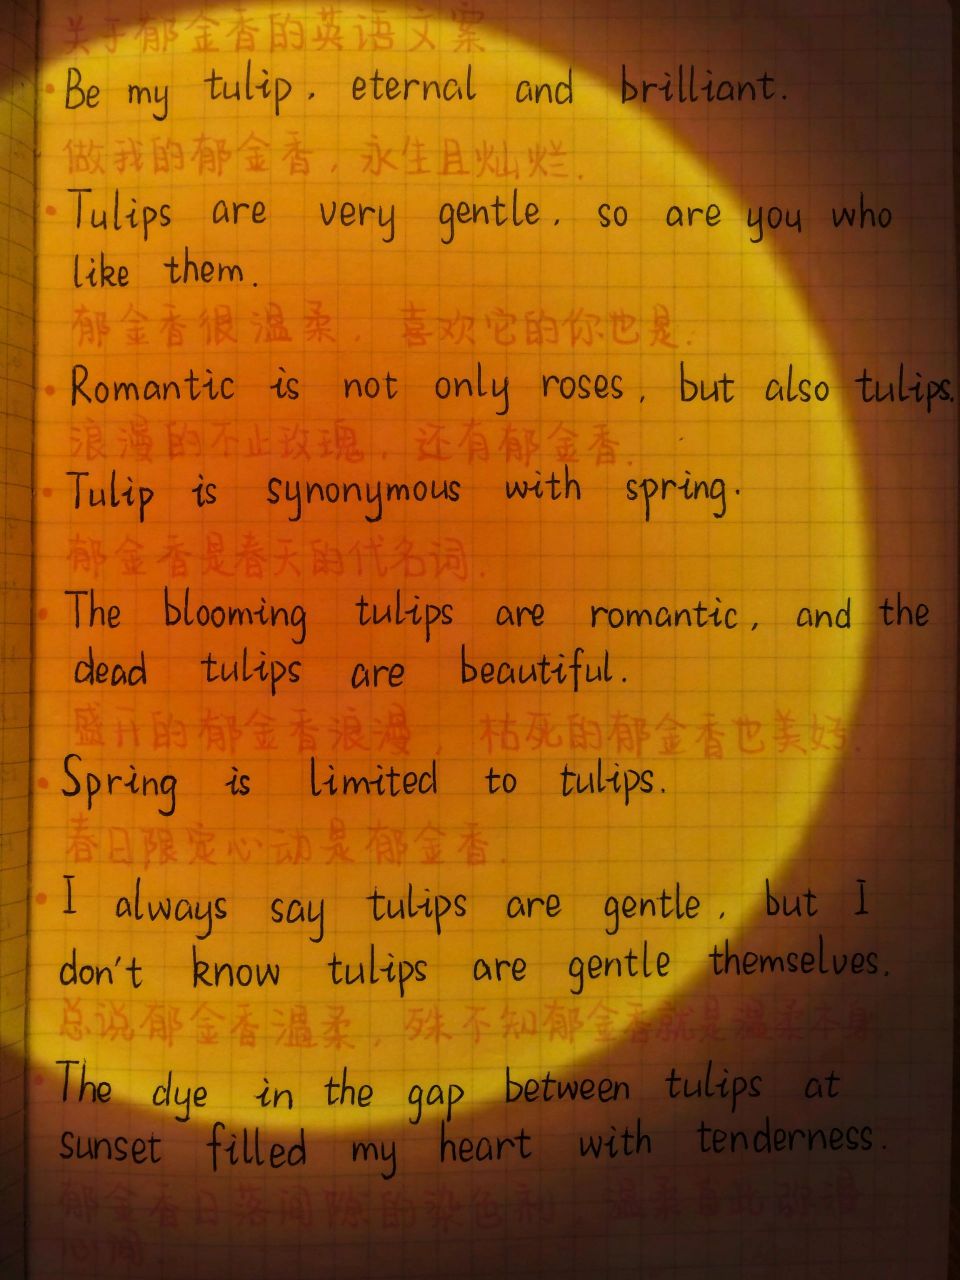 关于郁金香的英语文案
Be my tulip, eternal and brilliant.
做我的郁金香,永生且灿烂.
Tulips are very gentle, so are you who
like them.
郁金香很温柔,喜欢它的你也是.
Romantic is not only roses, but also tulips.
浪漫的不止玫瑰,还有郁金香.
Tulip is synonymous with spring.
郁金香是春天的代名词.
The blooming tulips are romantic, and the
dead tulips are beautiful.
盛开的郁金香浪漫,枯死的郁金香也美好.
Spring is limited to tulips.
春日限定心动是郁金香.
I always say tulips are gentle, but I
don't know tulips are gentle themselves.
总说郁金香温柔,殊不知郁金香就是温柔本身
The dye in the gap between tulips at
sunset filled my heart with tenderness.
郁金香日落间隙的染色剂,温柔自此弥漫
心间.